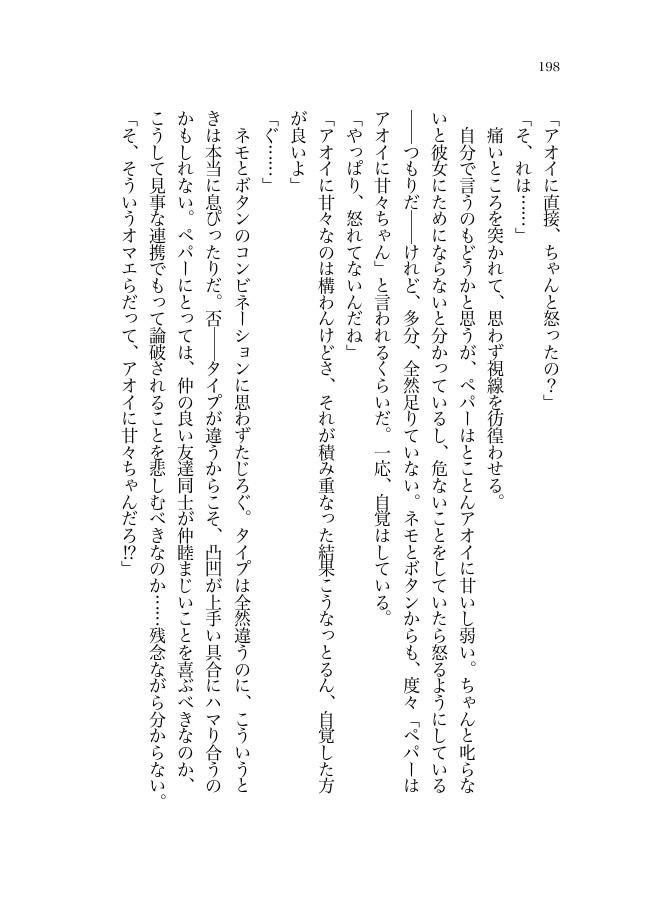 198
「アオイに直接、ちゃんと怒ったの？」
「そ、れは……」
　痛いところを突かれて、思わず視線を彷徨わせる。
　自分で言うのもどうかと思うが、ペパーはとことんアオイに甘いし弱い。ちゃんと叱らな
いと彼女にためにならないと分かっているし、危ないことをしていたら怒るようにしている
――つもりだ――けれど、多分、全然足りていない。ネモとボタンからも、度々「ペパーは
アオイに甘々ちゃん」と言われるくらいだ。一応、自覚はしている。
「やっぱり、怒れてないんだね」
「アオイに甘々なのは構わんけどさ、それが積み重なった結果こうなっとるん、自覚した方
が良いよ」
「ぐ……」
　ネモとボタンのコンビネーションに思わずたじろぐ。タイプは全然違うのに、こういうと
きは本当に息ぴったりだ。否――タイプが違うからこそ、凸凹が上手い具合にハマり合うの
かもしれない。ペパーにとっては、仲の良い友達同士が仲睦まじいことを喜ぶべきなのか、
こうして見事な連携でもって論破されることを悲しむべきなのか……残念ながら分からない。
「そ、そういうオマエらだって、アオイに甘々ちゃんだろ!?」